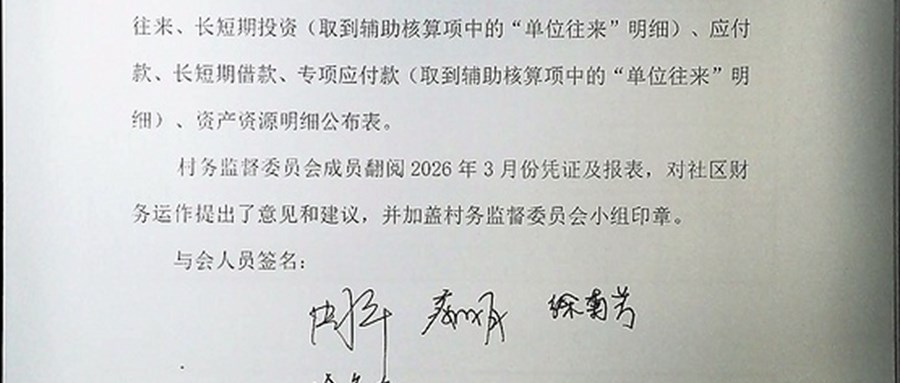 往来、长短期投资（取到辅助核算项中的“单位往来”明细）、应付
款、长短期借款、专项应付款（取到辅助核算项中的“单位往来”明
细）、资产资源明细公布表。
村务监督委员会成员翻阅2026年3月份凭证及报表，对社区财
务运作提出了意见和建议，并加盖村务监督委员会小组印章。
与会人员签名：
徐南芳